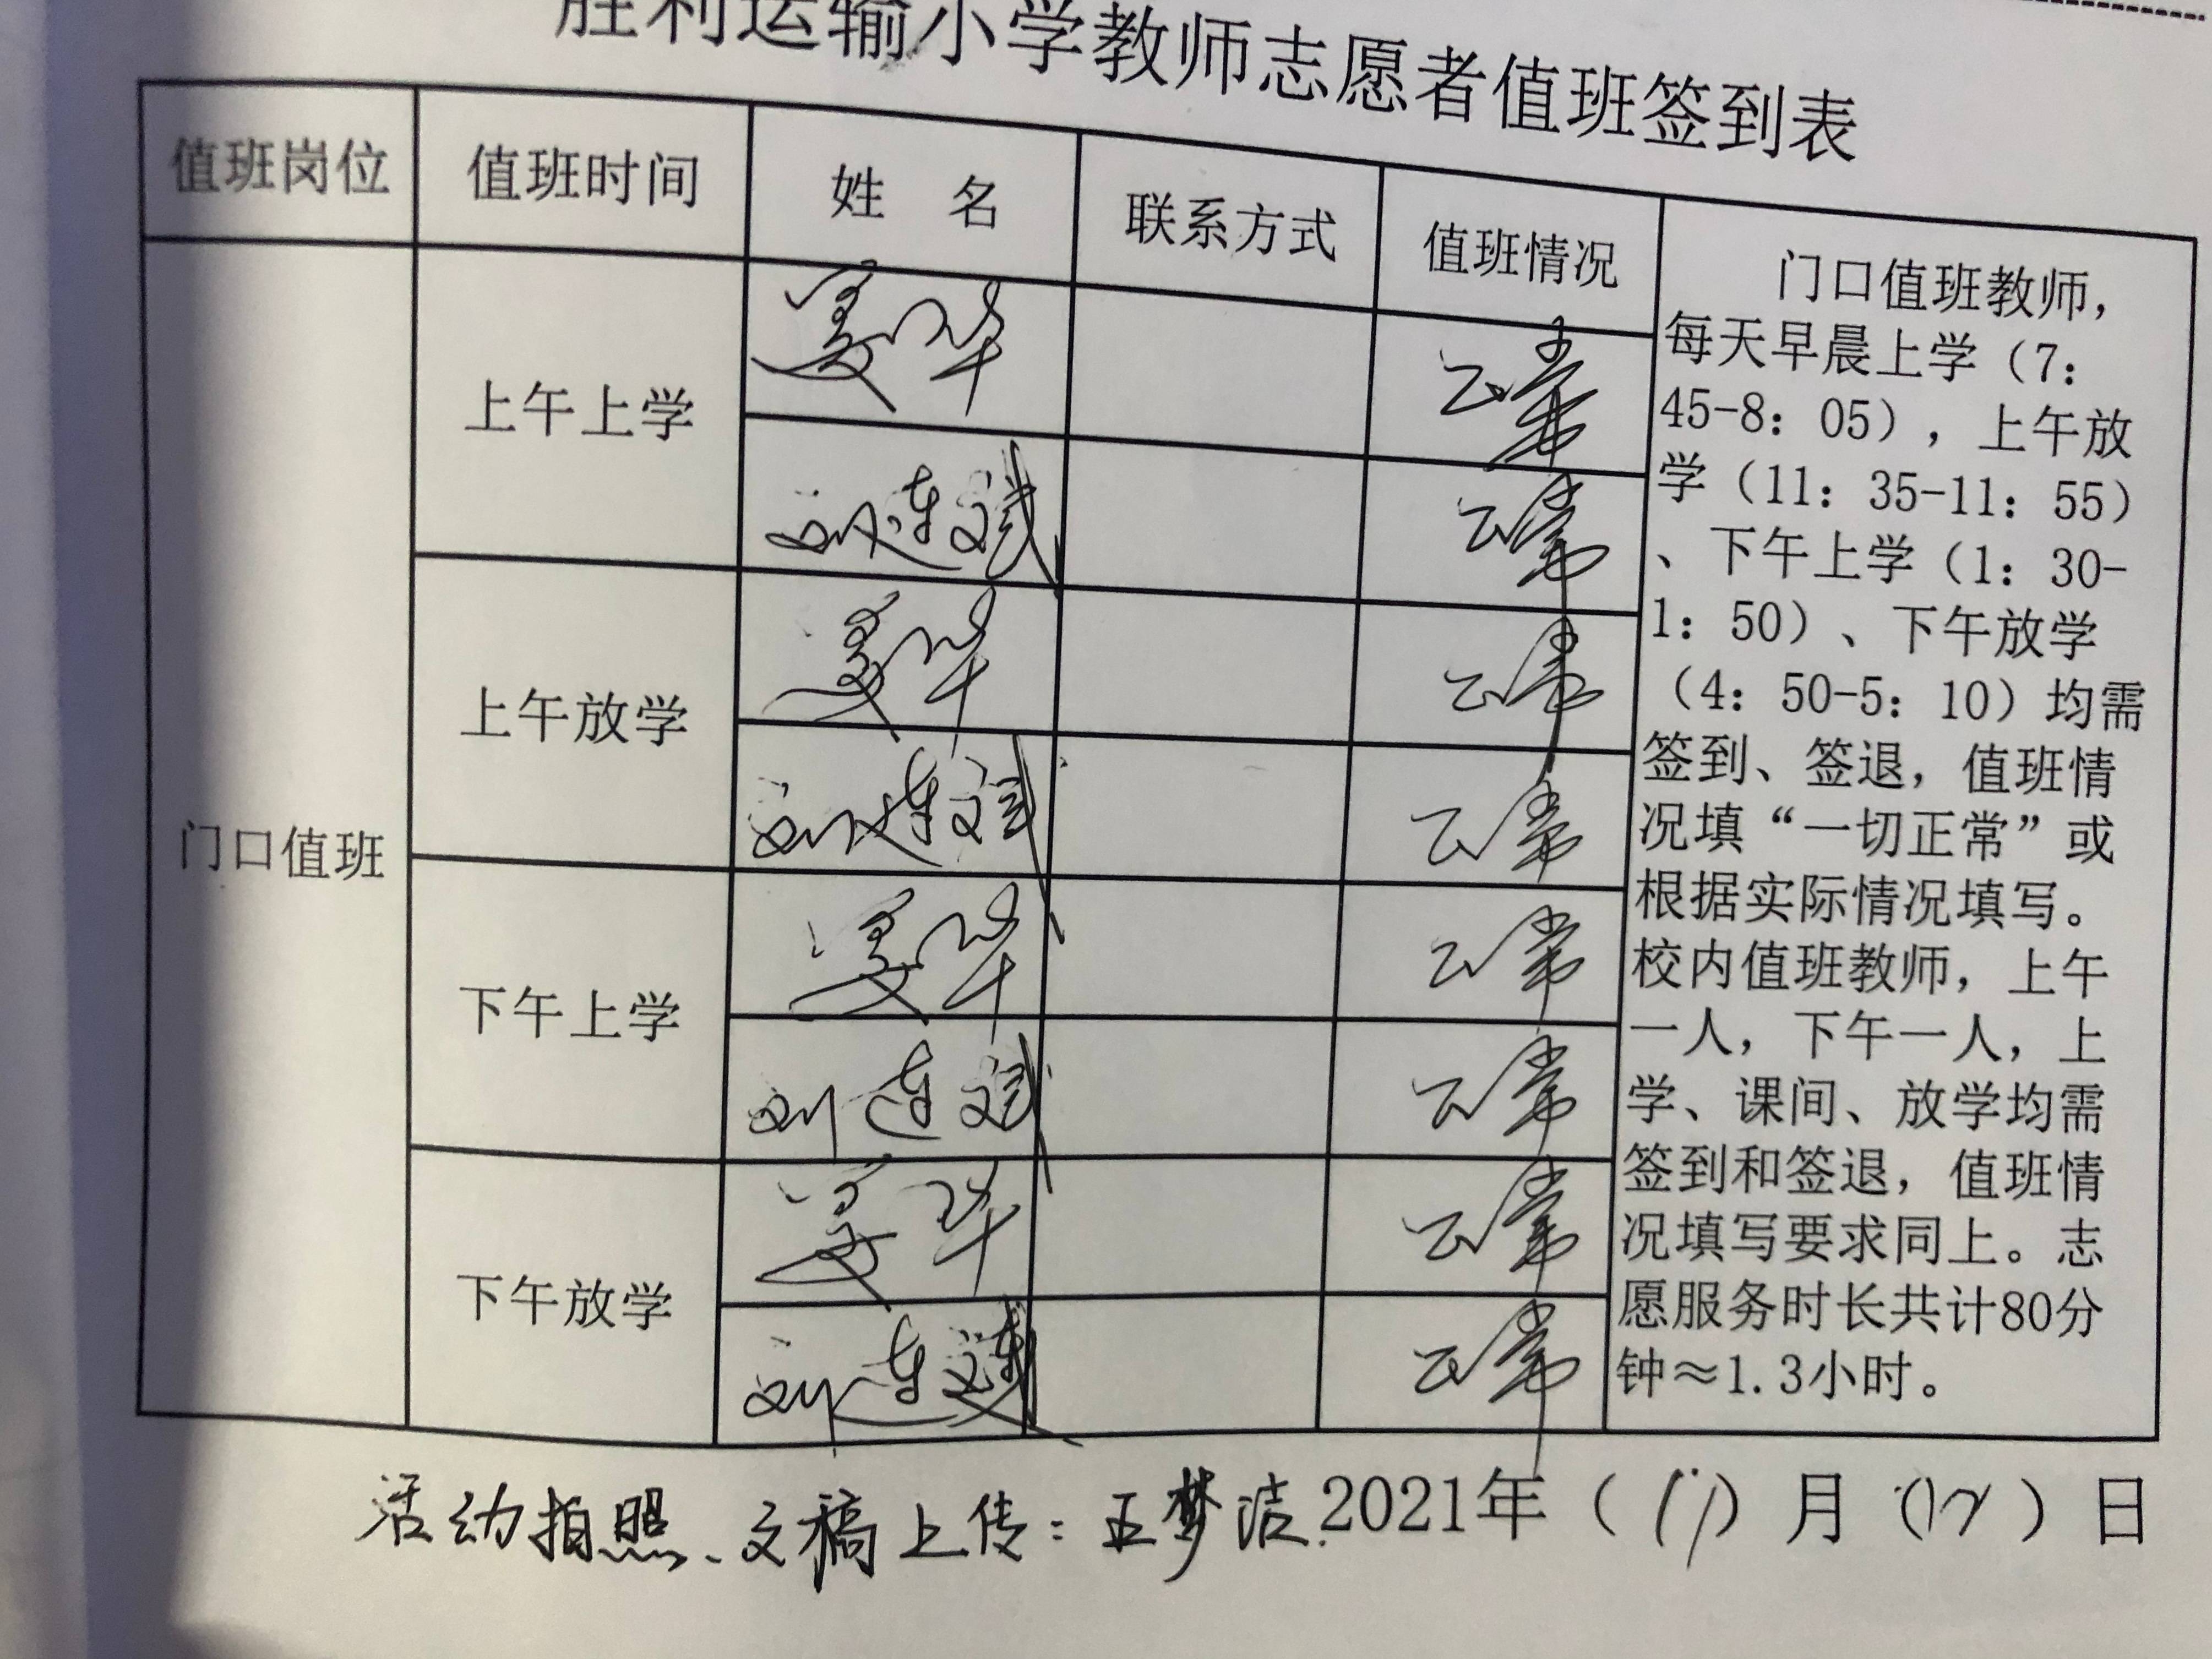 胜利运输小学教师志愿者值班签到表
值班岗位 值班时间 姓 名 联系方式 值班情况
门口值班教师，
每天早晨上学（7：
45-8：05），上午放
学（11：35-11：55）
、下午上学（1：30-
1：50）、下午放学
（4：50-5：10）均需
签到、签退，值班情
况填“一切正常”或
根据实际情况填写。
校内值班教师，上午
一人，下午一人，上
学、课间、放学均需
签到和签退，值班情
况填写要求同上。志
愿服务时长共计80分
钟≈1.3小时。
门口值班
上午上学
姜华 正常
刘连斌 正常
上午放学
姜华 正常
刘连斌 正常
下午上学
姜华 正常
刘连斌 正常
下午放学
姜华 正常
刘连斌 正常
活动拍照、文稿上传：王梦洁 2021年（11）月（12）日